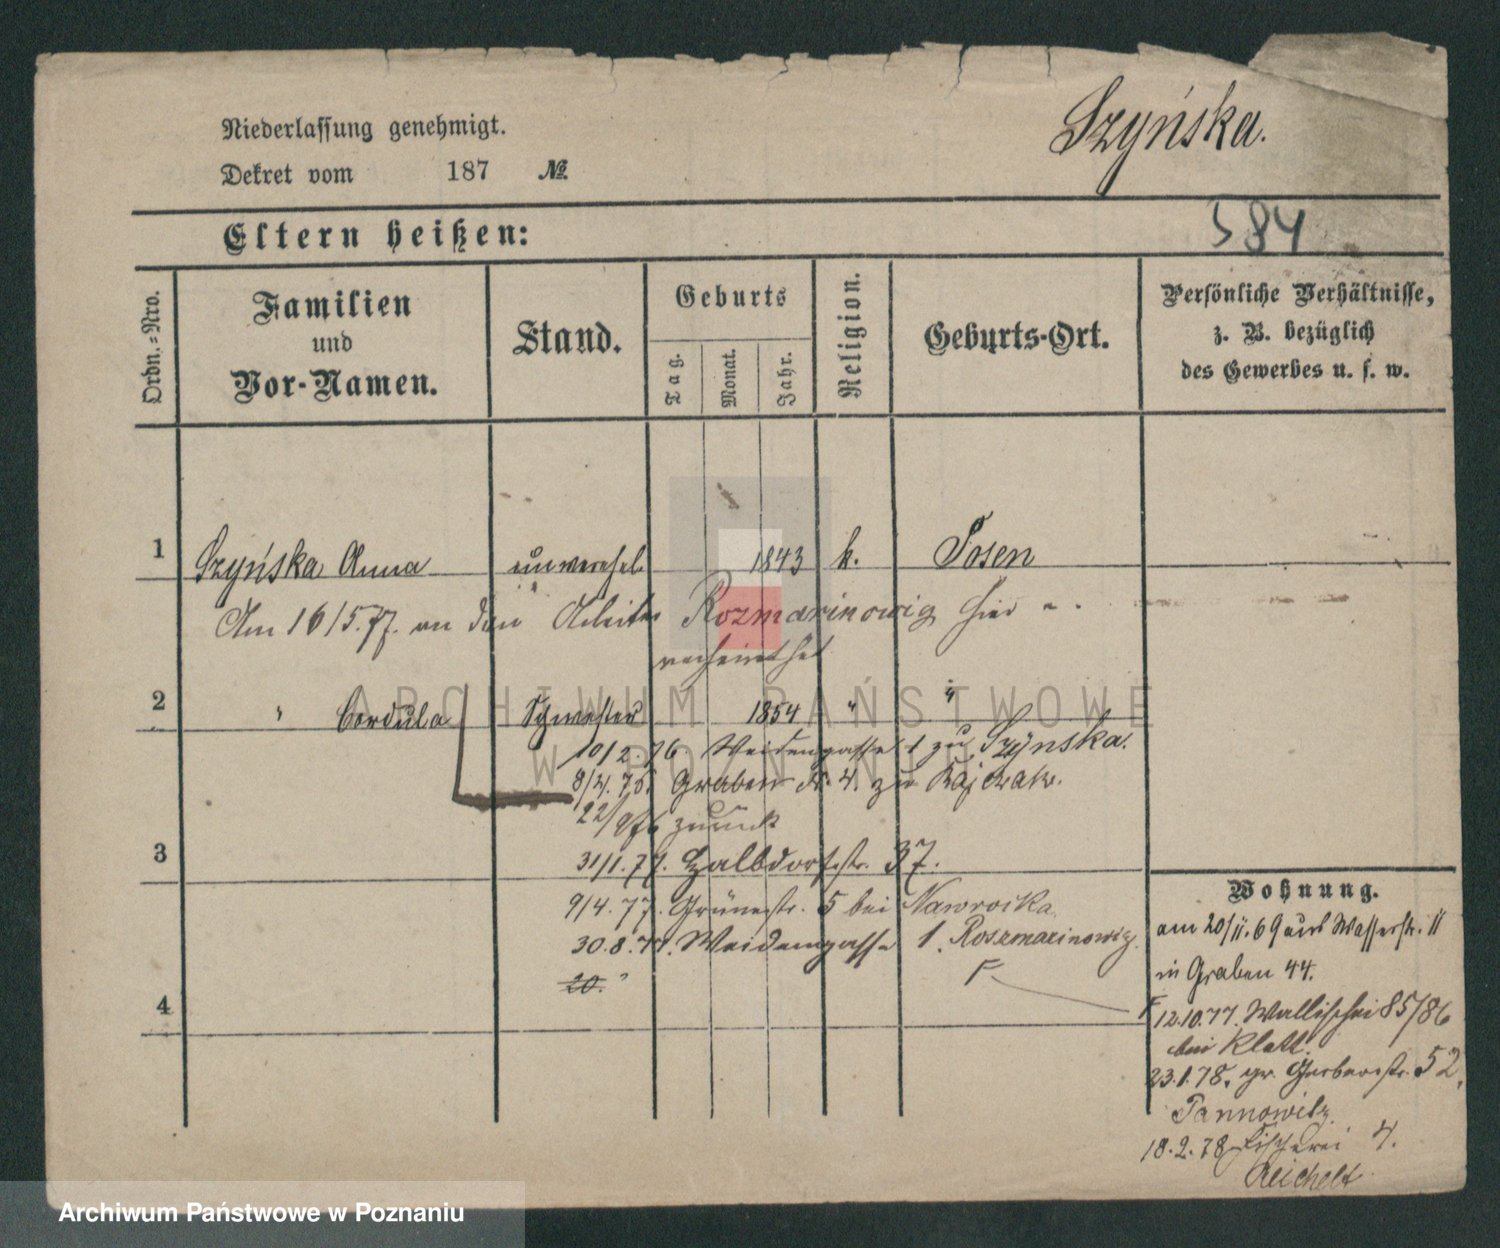 Niederlassung genehmigt.
Dekret vom 187 №
Szyńska.
584
Eltern heißen:
Ordn.-Nro.
Familien
und
Vor-Namen.
Stand.
Geburts
Tag.
Monat.
Jahr.
Religion.
Geburts-Ort.
Persönliche Verhältnisse,
z. B. bezüglich
des Gewerbes u. s. w.
1 Szyńska Anna unverehel. 1843 k. Posen
Am 16/5.77. an den Arbeiter Rozmarinowig hier
verheirathet
2 " Cordula Schwester 1854 " "
10/2.76. Weidengasse 1 zu Szynska.
8/4.75. Graben № 4. zu Kajewak.
22/9/76 zurück
3
31/1.77. Halbdorfstr. 37.
9/4.77. Grünestr. 5 bei Nawrocka
30.8.77. Weidengasse 1. Roszmarinowig.
20.
4
Wohnung.
am 20/11.69 aus Wasserstr. 11
in Graben 44.
12.10.77. Wallischei 85/86
bei Klatt.
23.1.78. gr. Gerberstr. 52.
Pannowitz
18.2.78 Fischerei 4.
Reichelt
ARCHIWUM PAŃSTWOWE
W POZNANIU
Archiwum Państwowe w Poznaniu